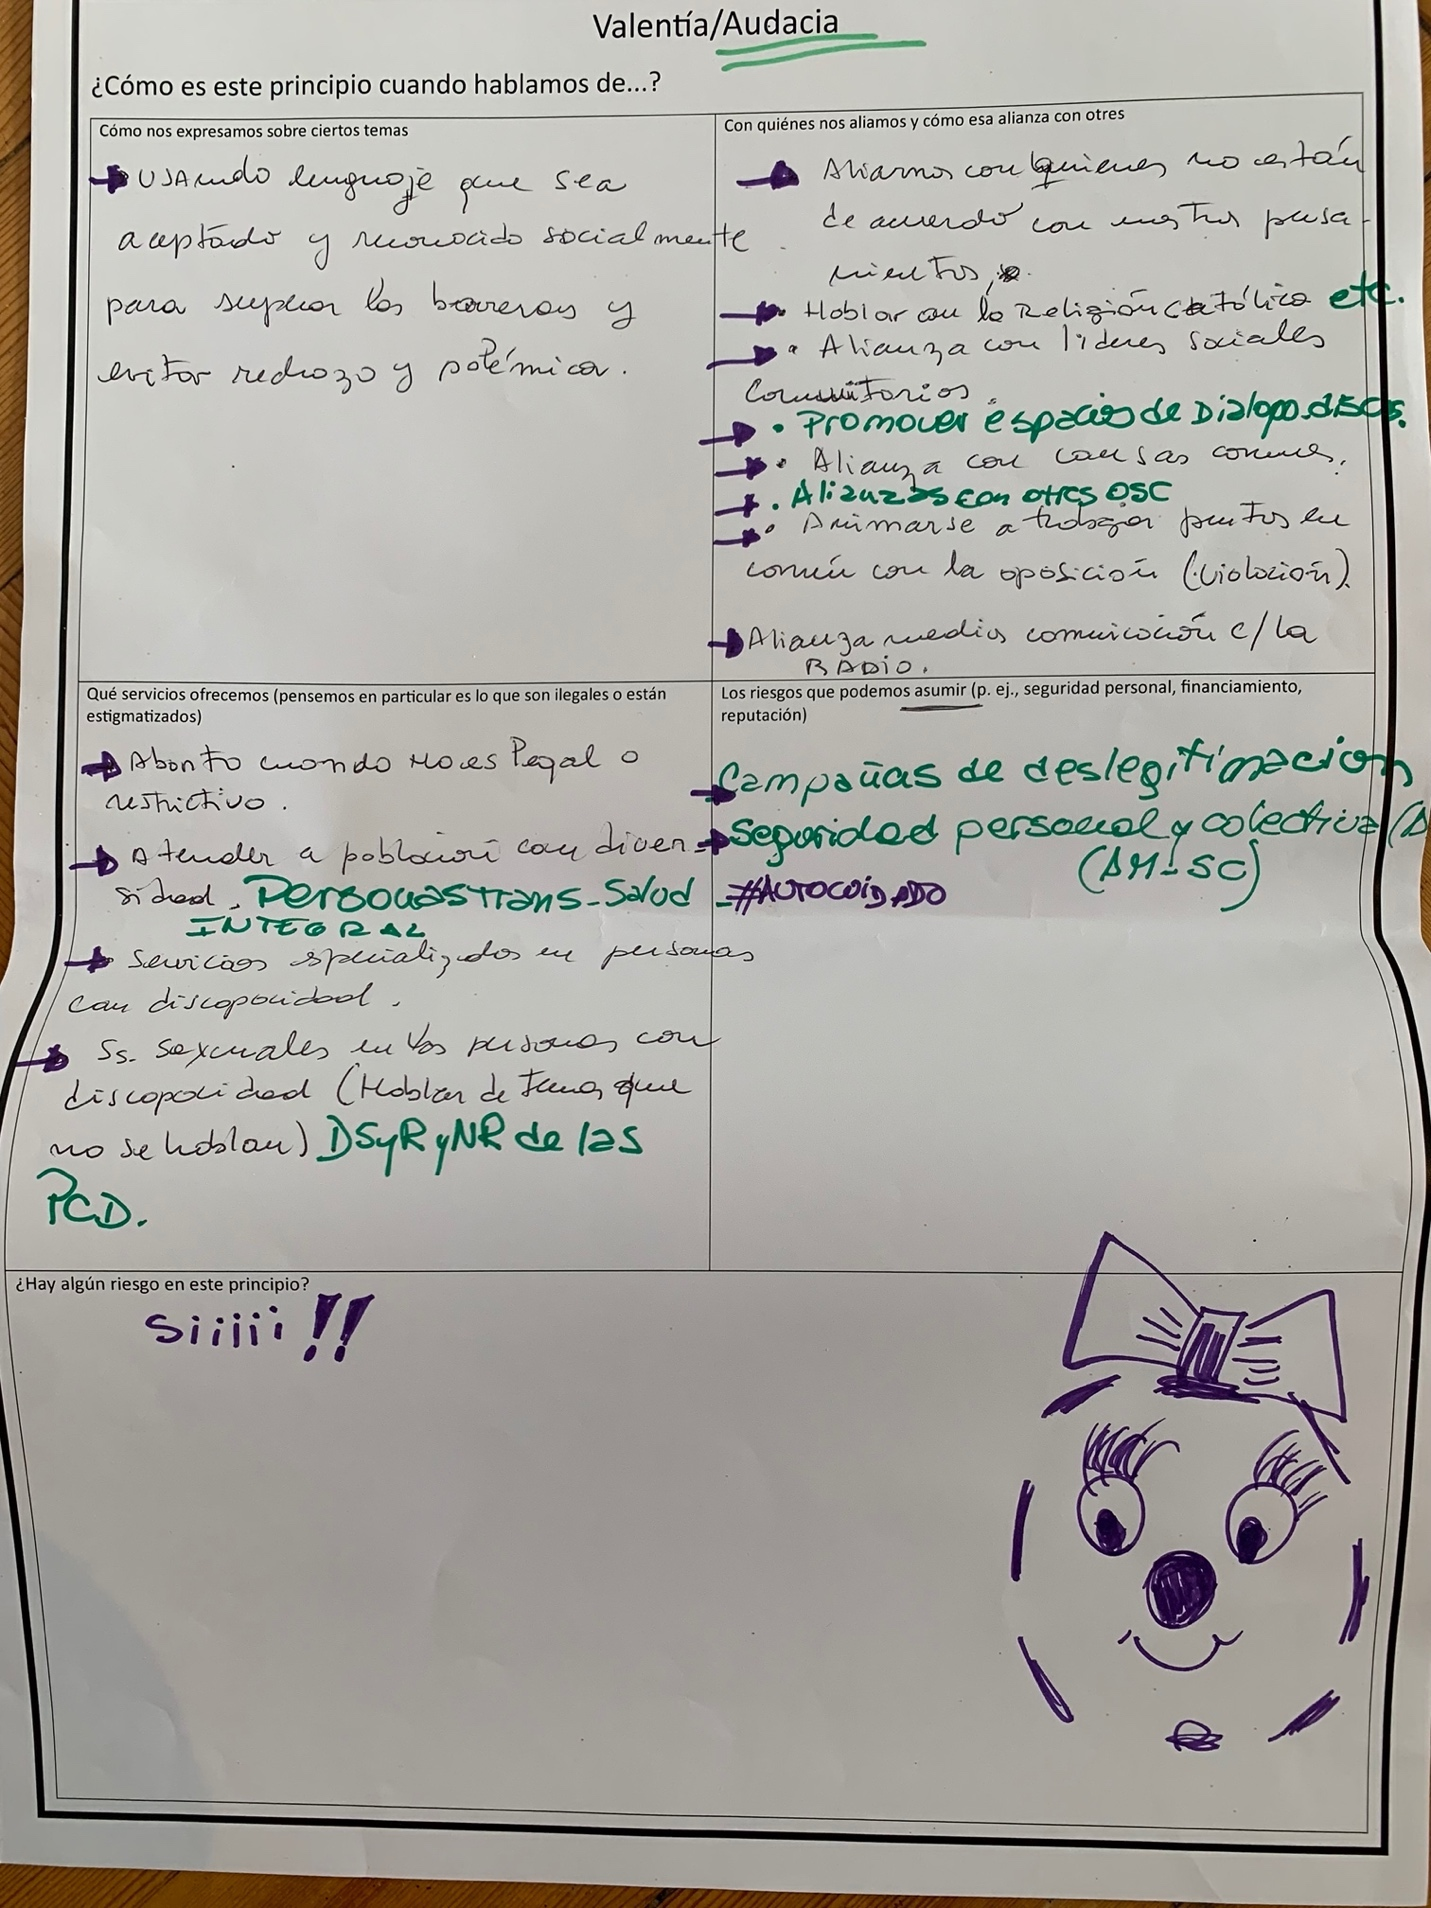 Valentía/Audacia
¿Cómo es este principio cuando hablamos de...?
Cómo nos expresamos sobre ciertos temas
USAndo lenguaje que sea
aceptado y reconocido socialmente
para superar las barreras y
evitar rechazo y polémica.
Con quiénes nos aliamos y cómo esa alianza con otres
Aliarnos con quienes no están
de acuerdo con nuestros pensa-
mientos,
Hablar con la Religión católica etc.
Alianza con lideres sociales
Comunitarios
Promover espacios de Dialogo.discs.
Alianza con causas comunes.
Alianzas con otras OSC
Animarse a trabajar puntos en
común con la oposición (violación).
Alianza medios comunicación c/ la
RADIO.
Qué servicios ofrecemos (pensemos en particular es lo que son ilegales o están
estigmatizados)
Aborto cuando No es legal o
restrictivo.
Atender a población con diver-
sidad. Personas trans-Salud
INTEGRAL
Servicios especializados en personas
con discapacidad.
Ss. sexuales en las personas con
discapacidad (Hablar de temas que
no se hablan) DSyRyNR de las
PCD.
Los riesgos que podemos asumir (p. ej., seguridad personal, financiamiento,
reputación)
Campañas de deslegitimacion
Seguridad personal y colectiva
(AM-SC)
#AUTOCUIDADO
¿Hay algún riesgo en este principio?
Siiiii!!